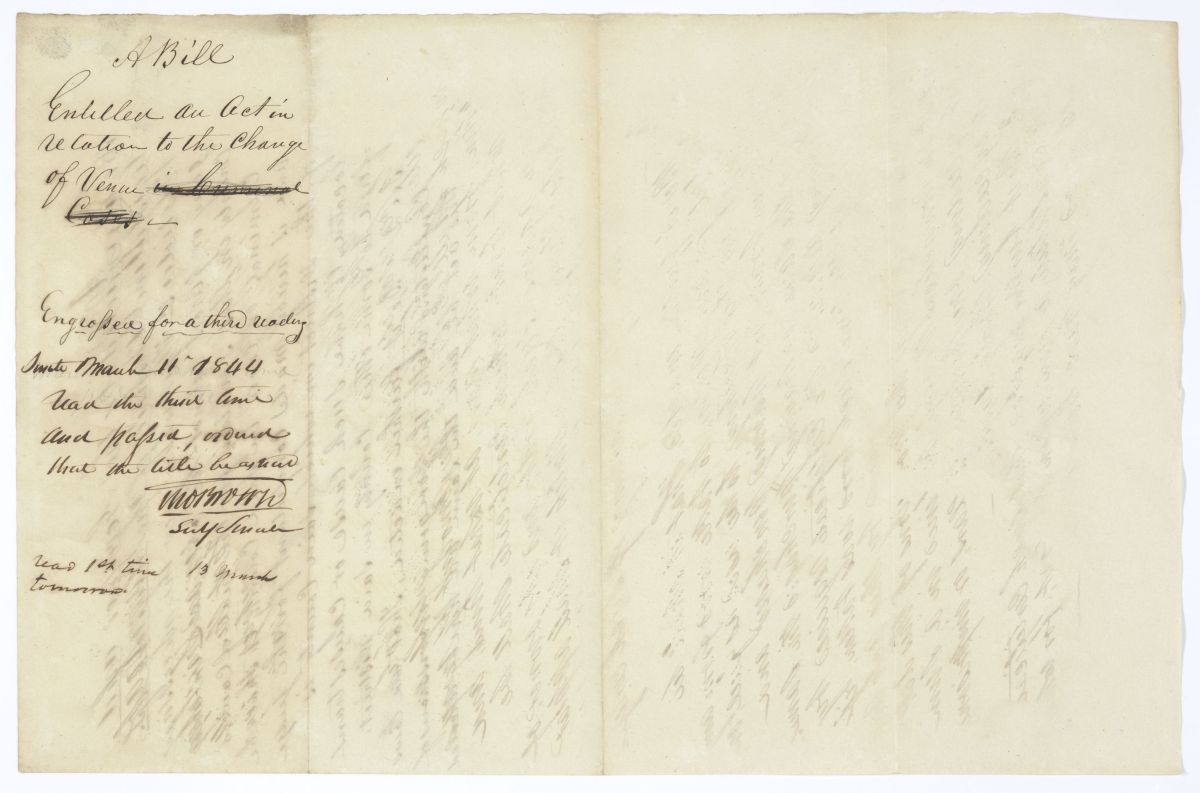 A Bill
Entitled an Act in
relation to the Change
of Venue in Criminal
Cases
Engrossed for a third reading
Senate March 11th 1844
read the third time
and passed, ordered
that the title be as stated
Tho Brown
Secy Senate
read 1st time 13 March
tomorrow.